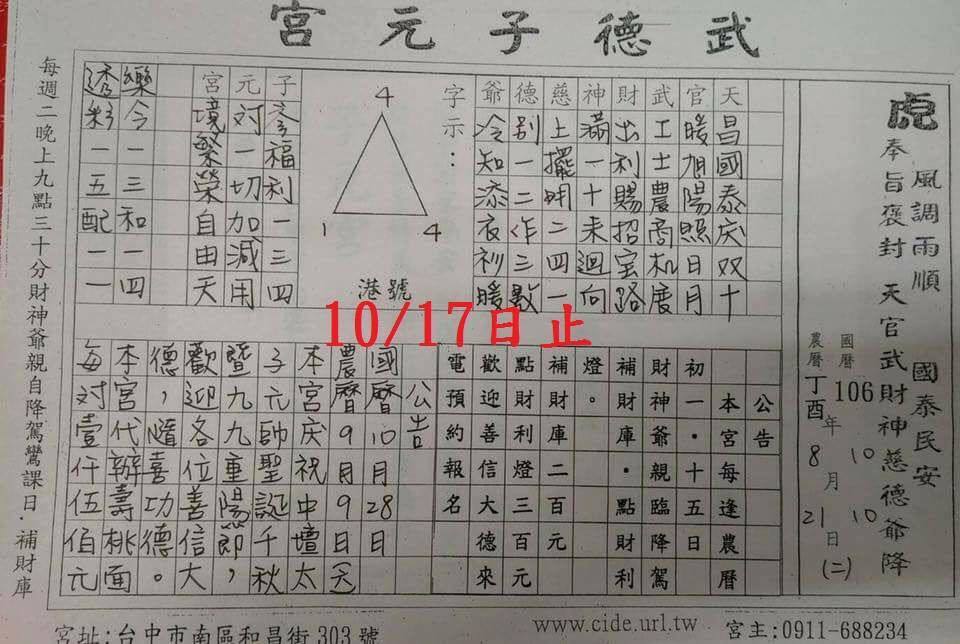 武德子元宮
虎
風調雨順 國泰民安
奉旨褒封 天官武財神慈德爺降
國曆 106年10月10日(二)
農曆丁酉年8月21日
天昌國泰庆双十
官暖旭陽照日月
武工士農商机度
財出利賜招宝路
神滿一十来迴向
慈上擺明二四一
德別一二作三數
爺冷知添衣衫暖
字示：
4
1 4
港號
子孝福利一三四
元对一切加減用
宮境繁榮自由天
樂令一三和一四
透彩一五配一一
10/17日止
公告
本宮每逢農曆
初一．十五日
財神爺親臨降駕
補財庫．點財利
燈。
補財庫二百元
點利燈三百元
歡迎善信大德來
電預約報名
公告
國曆10月28日
農曆9月9日
本宮庆祝中壇太
子元帥聖誕千秋
暨九九重陽節，
歡迎各位善信大
德，隨喜功德。
本宮代辦壽桃面
每对壹仟伍佰元
每週二晚上九點三十分財神爺親自降駕鸞課日．補財庫
宮址:台中市南區和昌街303號
www.cide.url.tw
宮主:0911-688234